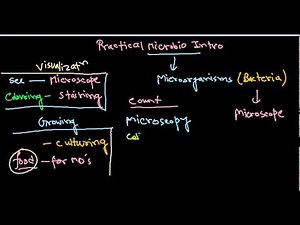 Practical Microbio Intro
Visualizatn
see — Microscope
Colouring - Staining
Microorganisms (Bacteria)
Microscope
count
Microscopy
Growing
- culturing
food - for MO's